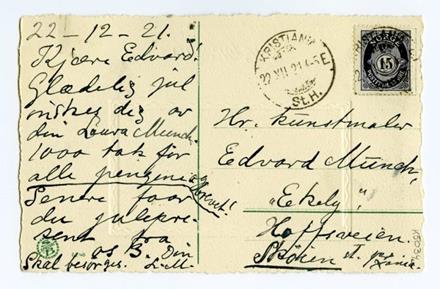 22-12-21.
Kjære Edvard!
Glædelig jul
ønskes dig av
din Laura Munch.
1000 tak for
alle pengene
og brevet!
Senere faar
du julepre-
sent fra
os 3. Din
Skal besørges. L.M.
KRISTIANIA
22 XII 21
E
St.H.
15
Hr. kunstmaler
Edvard Munch,
"Ekely",
Hoffsveien.
Skøien st.